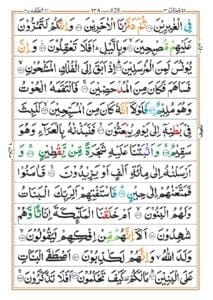 فِي الْغٰبِرِيْنَ ۝ ثُمَّ دَمَّرْنَا الْاٰخَرِيْنَ ۝ وَاِنَّكُمْ لَتَمُرُّوْنَ
عَلَيْهِمْ مُّصْبِحِيْنَ ۝ وَبِالَّيْلِ ؕ اَفَلَا تَعْقِلُوْنَ ۝ وَاِنَّ
يُوْنُسَ لَمِنَ الْمُرْسَلِيْنَ ۝ اِذْ اَبَقَ اِلَى الْفُلْكِ الْمَشْحُوْنِ ۝
فَسَاهَمَ فَكَانَ مِنَ الْمُدْحَضِيْنَ ۝ فَالْتَقَمَهُ الْحُوْتُ
وَهُوَ مُلِيْمٌ ۝ فَلَوْلَاۤ اَنَّهٗ كَانَ مِنَ الْمُسَبِّحِيْنَ ۝ لَلَبِثَ
فِيْ بَطْنِهٖۤ اِلٰى يَوْمِ يُبْعَثُوْنَ ۝ فَنَبَذْنٰهُ بِالْعَرَآءِ وَهُوَ
سَقِيْمٌ ۝ وَاَنْۢبَتْنَا عَلَيْهِ شَجَرَةً مِّنْ يَّقْطِيْنٍ ۝ وَ
اَرْسَلْنٰهُ اِلٰى مِائَةِ اَلْفٍ اَوْ يَزِيْدُوْنَ ۝ فَاٰمَنُوْا
فَمَتَّعْنٰهُمْ اِلٰى حِيْنٍ ۝ فَاسْتَفْتِهِمْ اَلِرَبِّكَ الْبَنَاتُ
وَلَهُمُ الْبَنُوْنَ ۝ اَمْ خَلَقْنَا الْمَلٰٓئِكَةَ اِنَاثًا وَّهُمْ
شٰهِدُوْنَ ۝ اَلَاۤ اِنَّهُمْ مِّنْ اِفْكِهِمْ لَيَقُوْلُوْنَ ۝
وَلَدَ اللّٰهُ ۙ وَاِنَّهُمْ لَكٰذِبُوْنَ ۝ اَصْطَفَى الْبَنَاتِ
عَلَى الْبَنِيْنَ ۝ مَا لَكُمْ ۫ كَيْفَ تَحْكُمُوْنَ ۝ اَفَلَا تَذَكَّرُوْنَ ۝